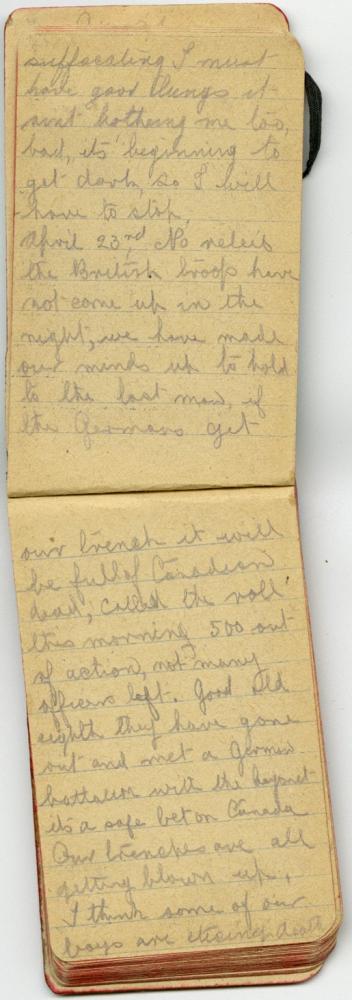 suffocating I must
have good lungs it
aint bothering me too,
bad, its beginning to
get dark, so I will
have to stop,
April 23rd, No releis
the British troops have
not come up in the
night, we have made
our minds up to hold
to the last man, if
the Germans get
our trench it will
be full of Canadian
dead, called the roll
this morning 500 out
of action, not many
officers left. Good old
eighth they have gone
out and met a German
battalion with the bayonet
its a safe bet on Canada
Our trenches are all
getting blown up,
I think some of our
boys are death